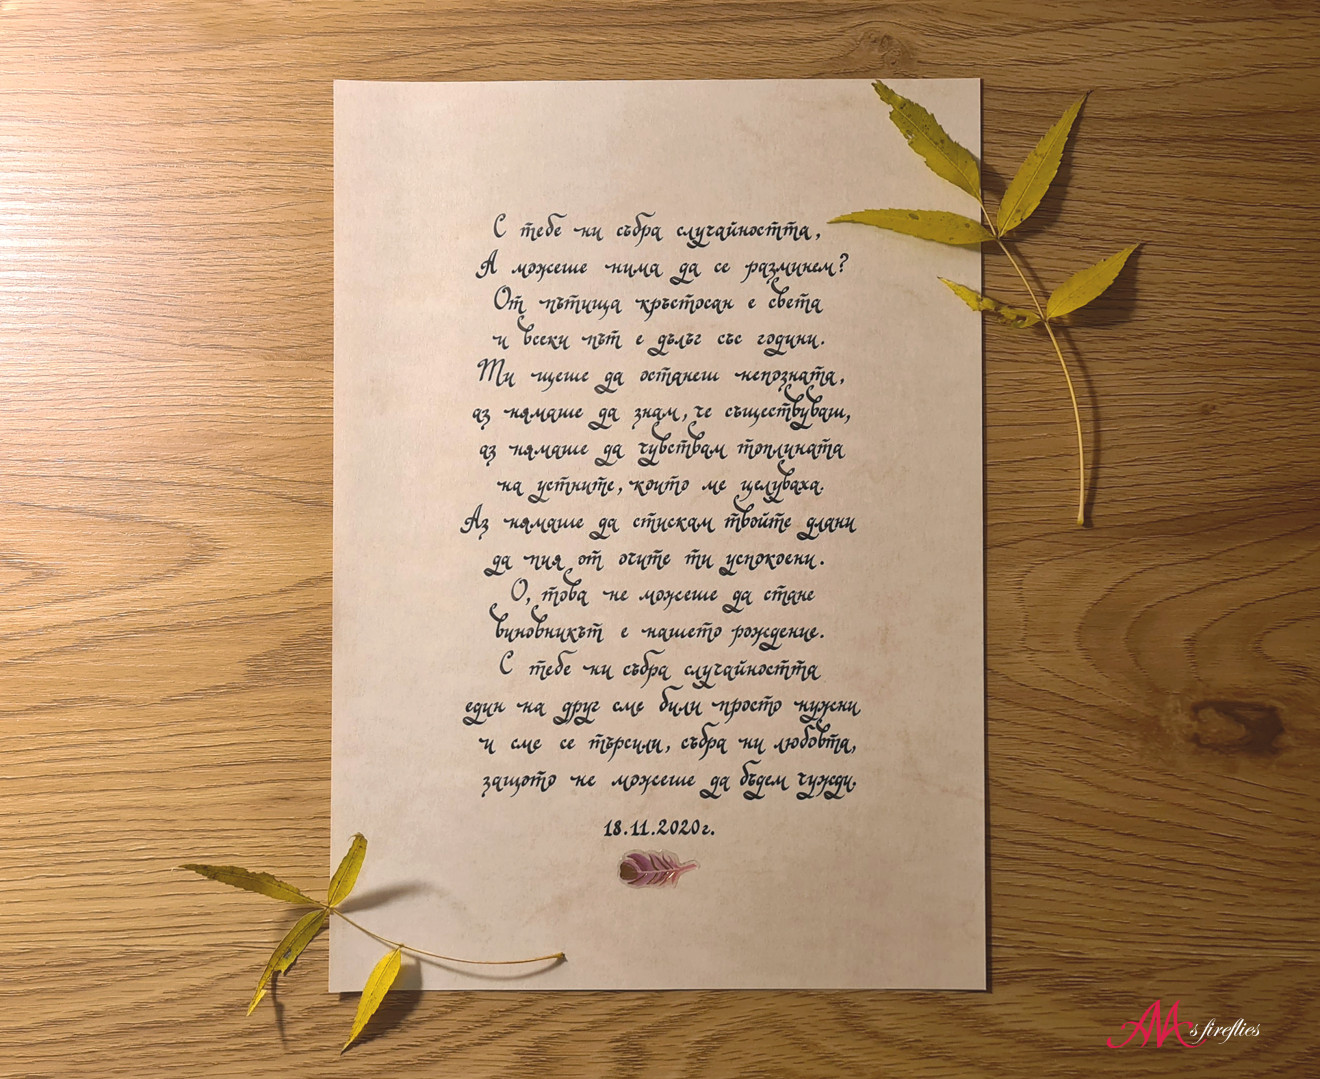 С тебе ни събра случайността,
А можеше нима да се разминем?
От пътища кръстосан е света
и всеки път е дълъг със години.
Ти щеше да останеш непозната,
аз нямаше да знам, че съществуваш,
аз нямаше да чувствам топлината
на устните, които ме целуваха.
Аз нямаше да стискам твойте длани
да пия от очите ти успокоени.
О, това не можеше да стане
виновникът е нашето рождение.
С тебе ни събра случайността
един на друг сме били просто нужни
и сме се търсили, събра ни любовта,
защото не можеше да бъдем чужди.
18.11.2020г.
AM's fireflies